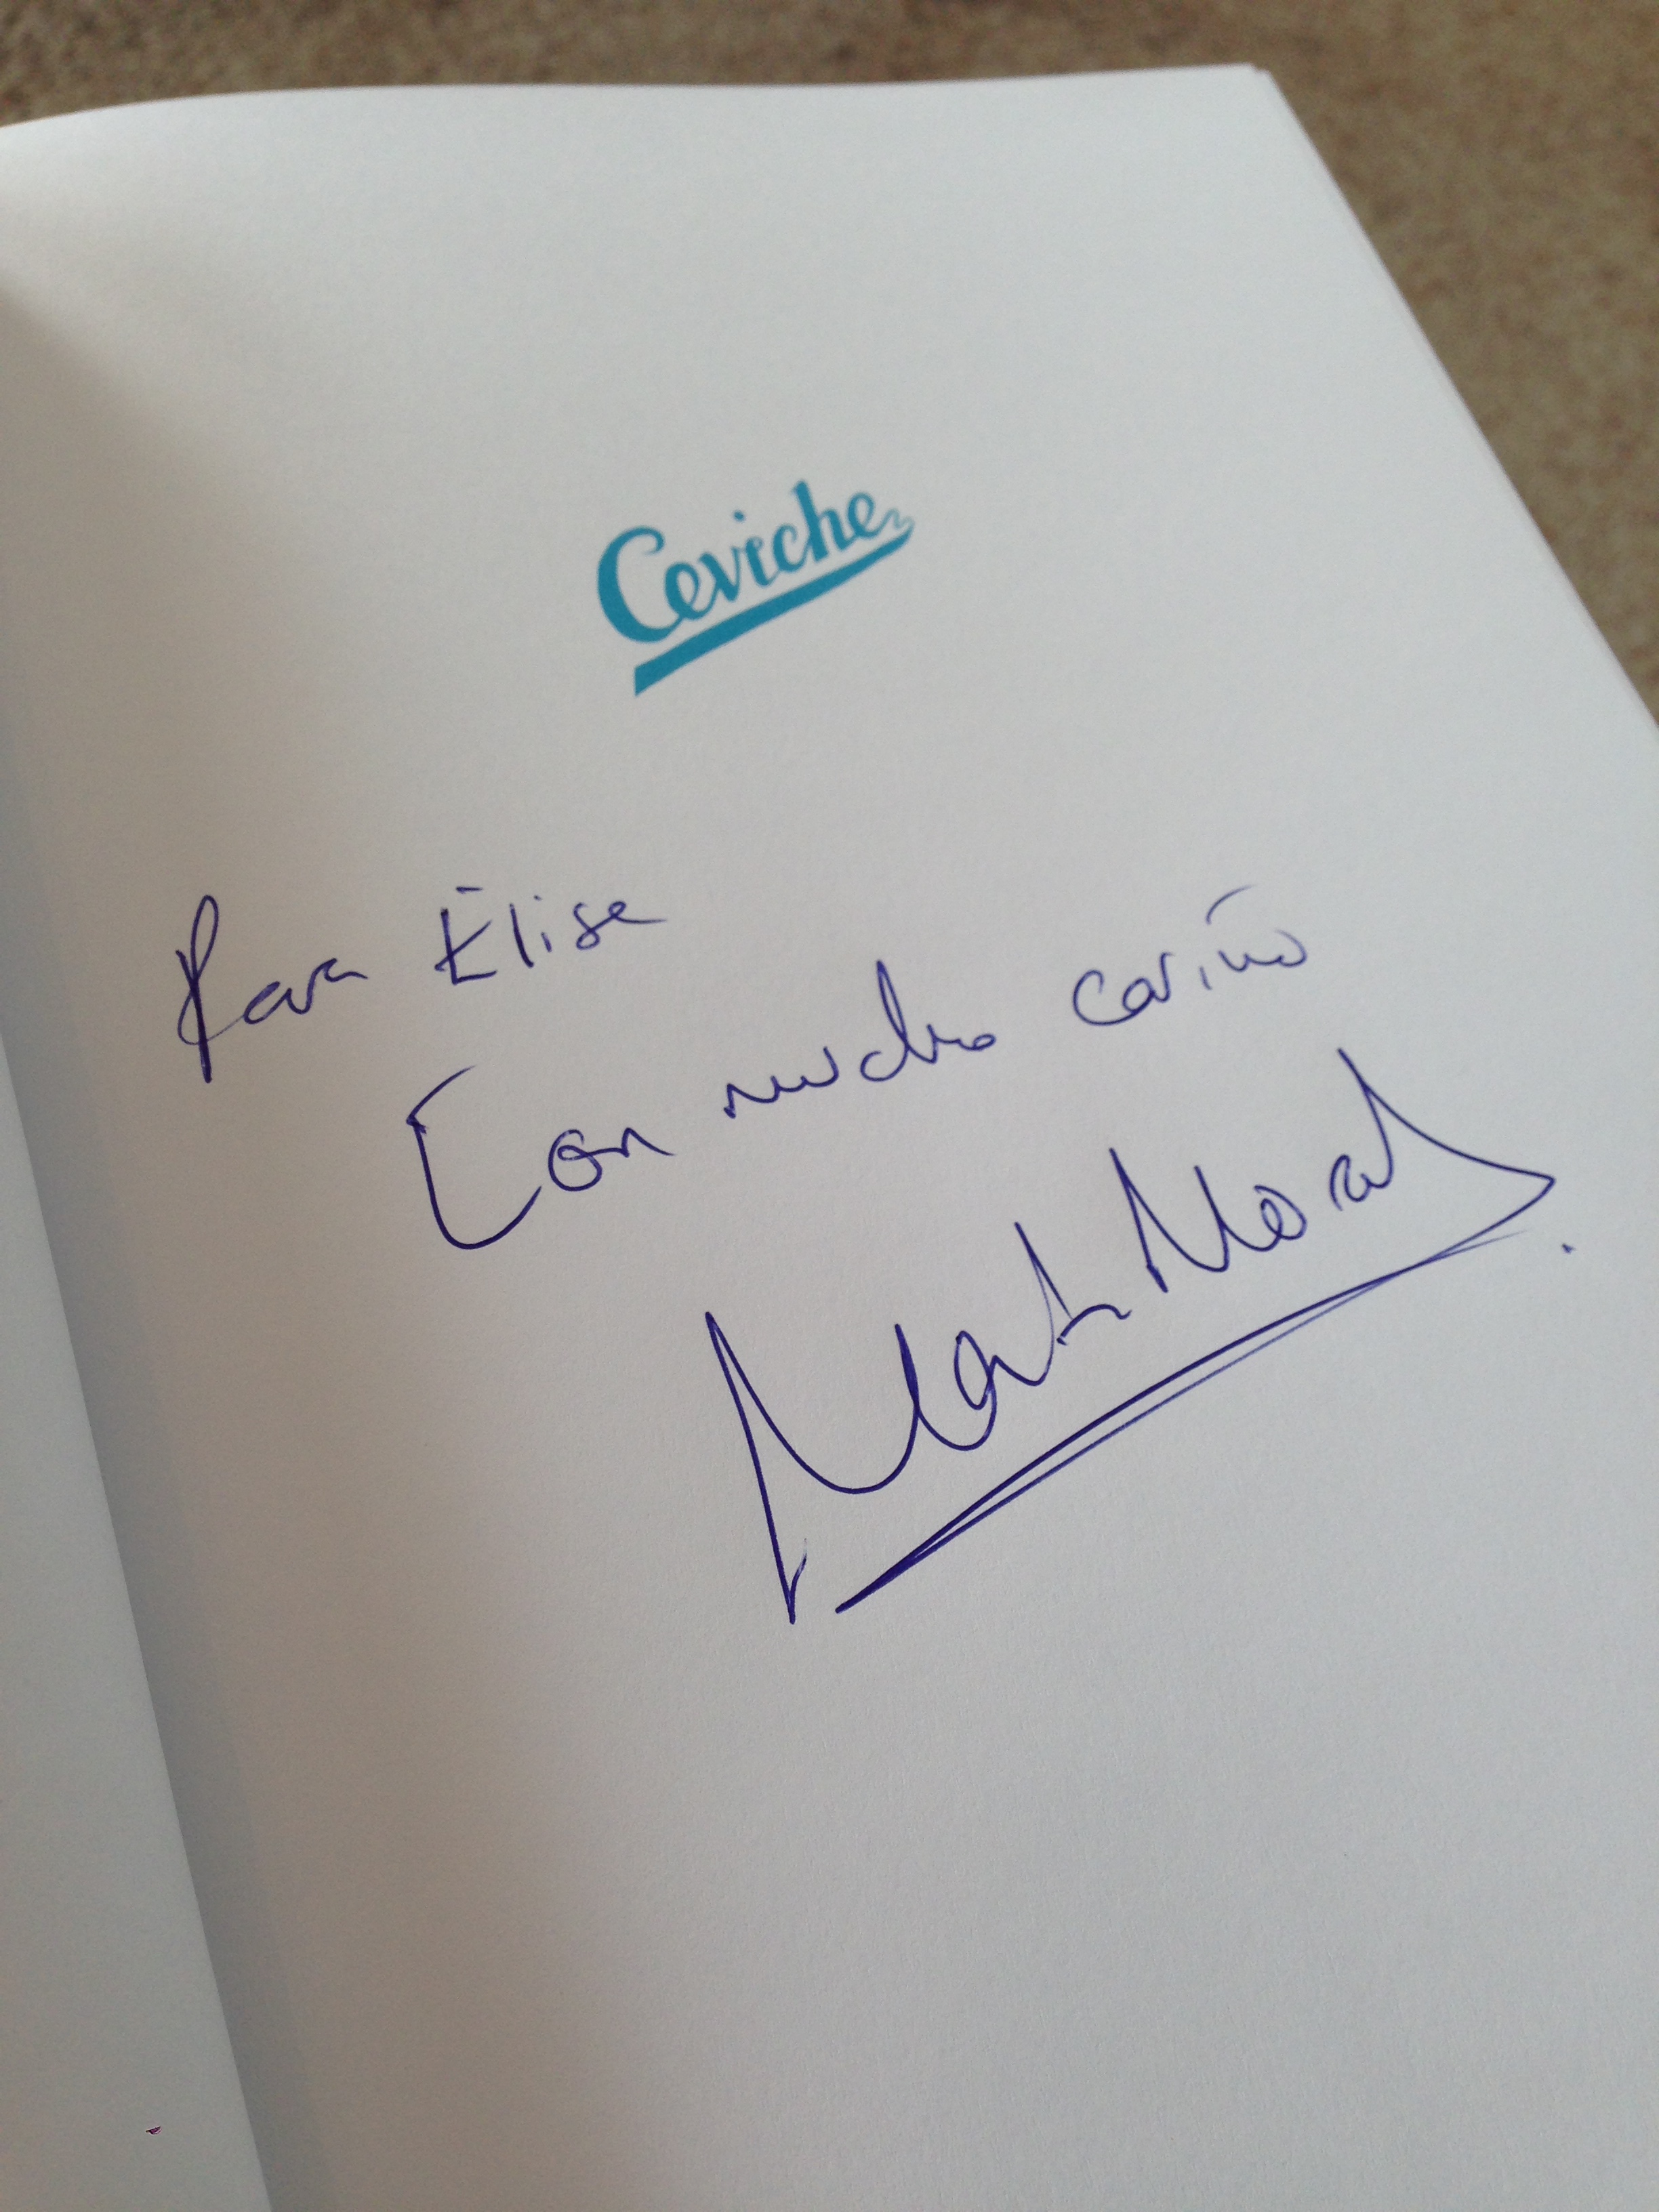 Ceviche
Para Elise
Con mucho cariño
Martin Morales